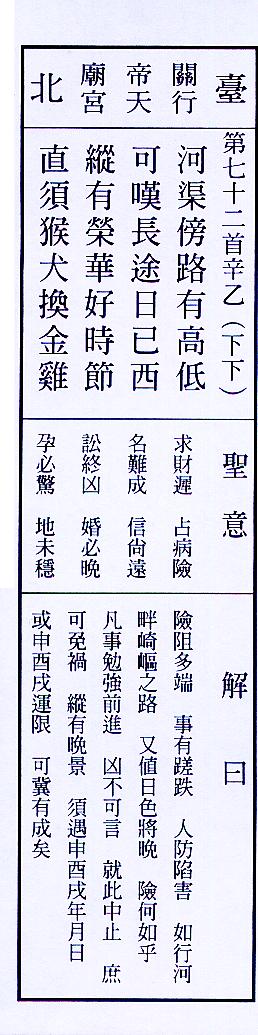 臺北
行天宮
關帝廟
第七十二首辛乙（下下）
河渠傍路有高低
可嘆長途日已西
縱有榮華好時節
直須猴犬換金雞
聖意
求財遲　占病險
名難成　信尚遠
訟終凶　婚必晚
孕必驚　地未穩
解曰
險阻多端　事有蹉跌　人防陷害　如行河
畔崎嶇之路　又值日色將晚　險何如乎
凡事勉強前進　凶不可言　就此中止　庶
可免禍　縱有晚景　須遇申酉戌年月日
或申酉戌運限　可冀有成矣